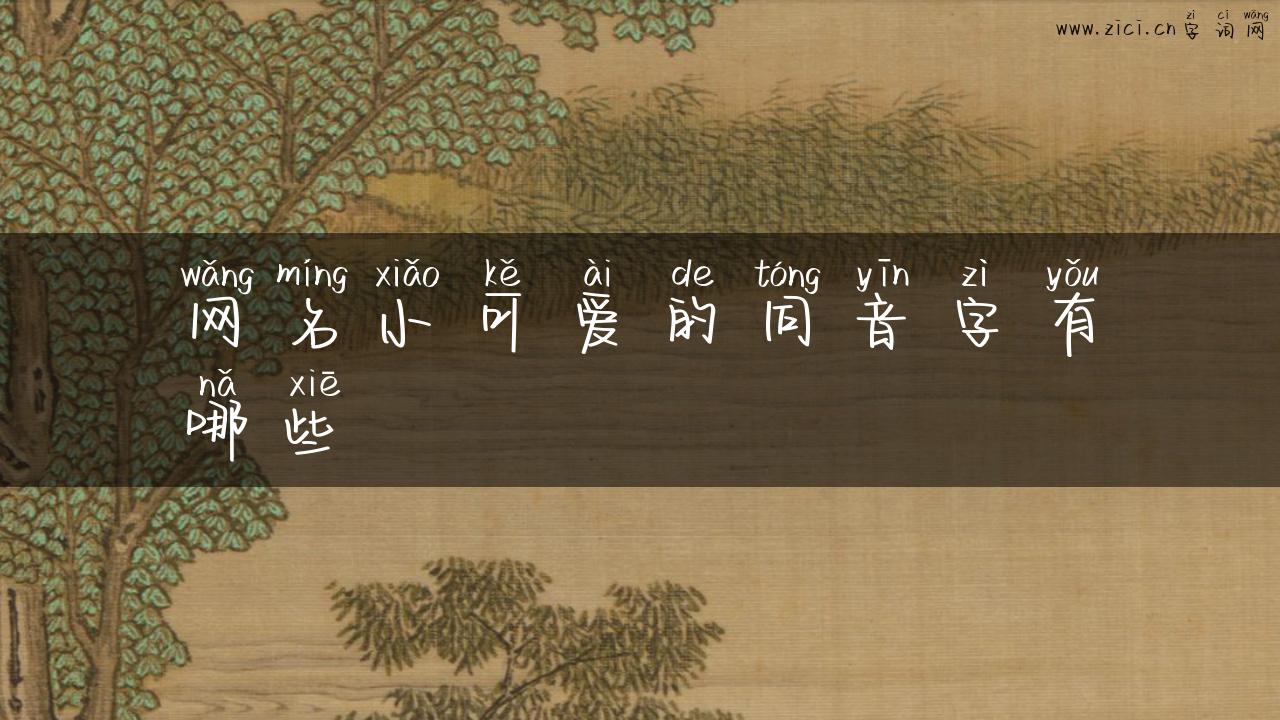 zì cí wǎng
www.zici.cn 字 词 网
wǎng míng xiǎo kě ài de tóng yīn zì yǒu
网 名 小 可 爱 的 同 音 字 有
nǎ xiē
哪 些